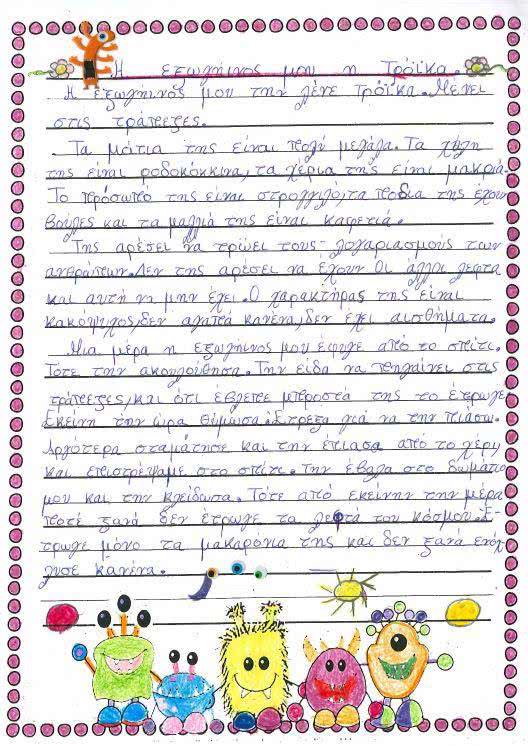 Η εξωγήινος μου η Τρόϊκα.
Η εξωγήινος μου την λένε Τρόϊκα. Μένει
στις τράπεζες.
Τα μάτια της είναι πολύ μεγάλα. Τα χείλη
της είναι ροδοκόκκινα, τα χέρια της είναι μακριά.
Το πρόσωπο της είναι στρογγυλό, τα πόδια της έχουν
βούλες και τα μαλλιά της είναι καφετιά.
Της αρέσει να τρώει τους λογαριασμούς των
ανθρώπων. Δεν της αρέσει να έχουν οι άλλοι λεφτά
και αυτή να μην έχει. Ο χαρακτήρας της είναι
κακόψυχος, δεν αγαπά κανένα, δεν έχει αισθήματα.
Μια μέρα η εξωγήινος μου έφυγε από το σπίτι.
Τότε την ακολούθησα. Την είδα να πηγαίνει στις
τράπεζες και ότι έβλεπε μπροστά της το έτρωγε.
Εκείνη την ώρα θύμωσα. Έτρεξα για να την πιάσω.
Αργότερα σταμάτησε και την έπιασα από το χέρι
και επιστρέψαμε στο σπίτι. Την έβαλα στο δωμάτιο
μου και την κλείδωσα. Τότε από εκείνην την μέρα
ποτέ ξανά δεν έτρωγε τα λεφτά του κόσμου. Έ-
τρωγε μόνο τα μακαρόνια της και δεν ξανά ενόχ
λησε κανένα.